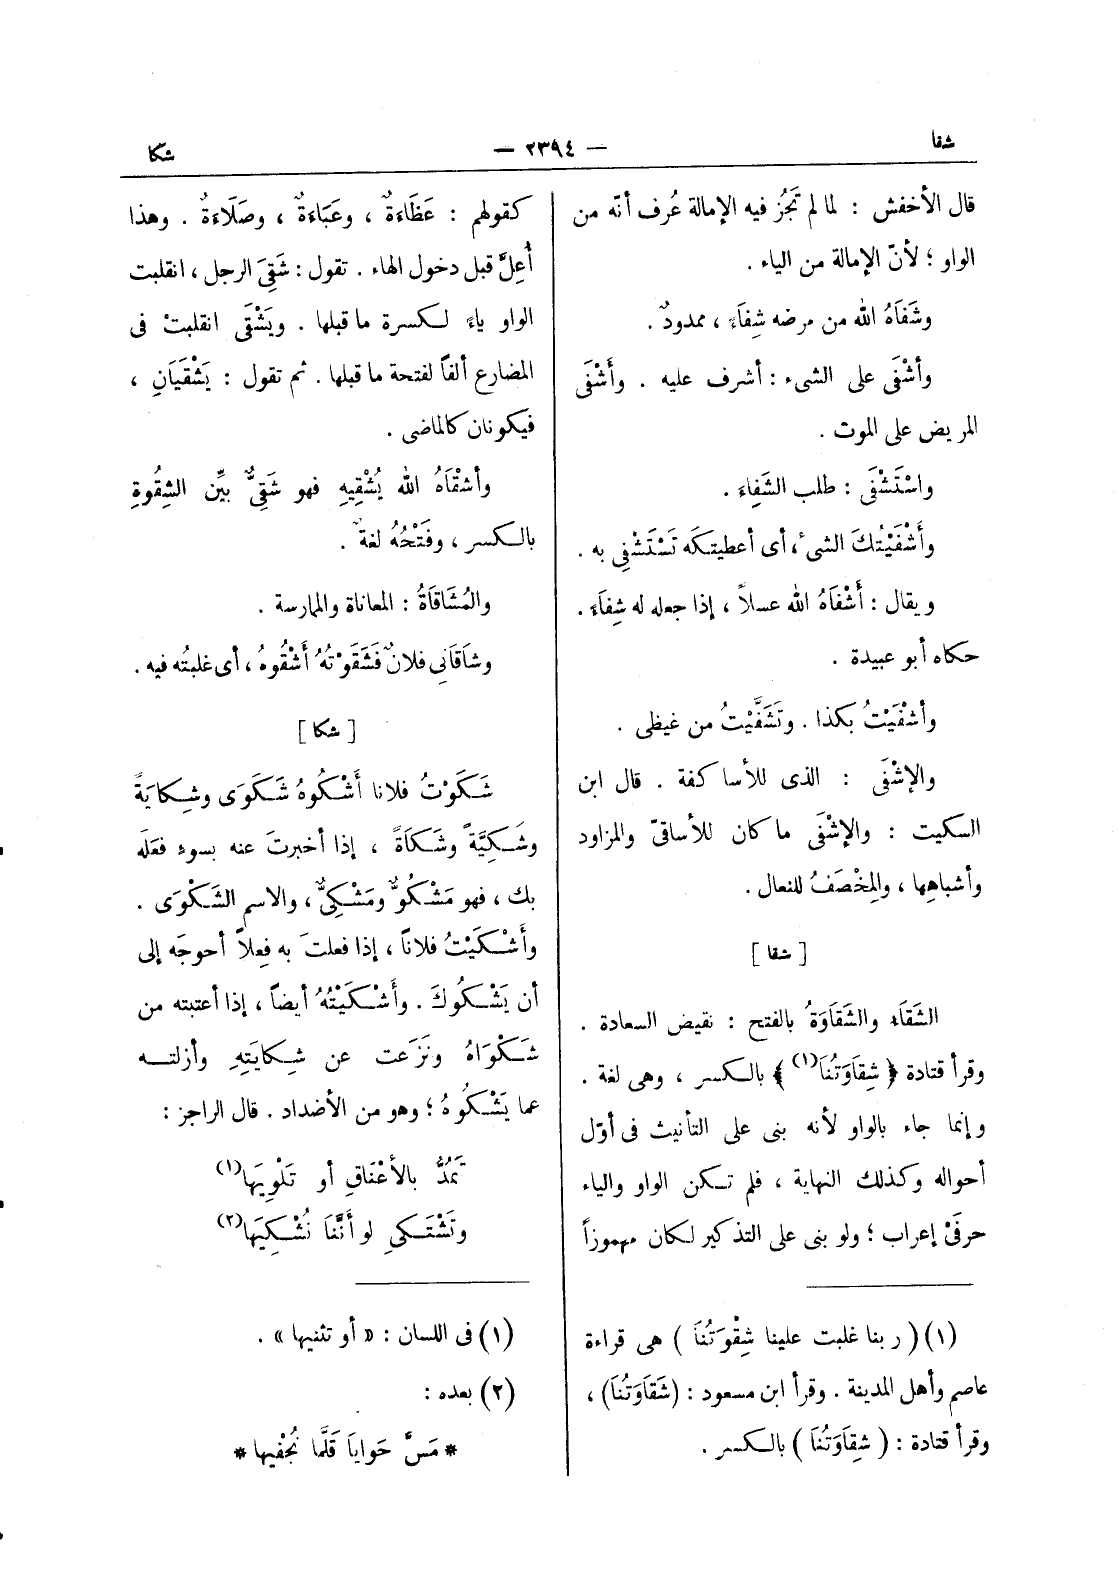 شفا
— ٢٣٩٤ —
شكا
قال الأخفش : لما لم تَجُزْ فيه الإمالة عُرف أنّه من
الواو ؛ لأنّ الإمالة من الياء .
وشَفَاهُ الله من مرضه شِفَاءً ، ممدودٌ .
وأشْفَى على الشىء : أشرف عليه . وأَشْفَى
المريض على الموت .
واسْتَشْفَى : طلب الشَفِاءَ .
وأَشْفَيْتُكَ الشىءَ ، أى أعطيتكَه تَسْتَشْفِى به .
ويقال : أَشْفَاهُ الله عسلاً ، إذا جعله له شِفَاءً .
حكاه أبو عبيدة .
وأشْفَيْتُ بكذا . وتَشَفَّيْتُ من غيظى .
والإشْفَى : الذى للأساكفة . قال ابن
السكيت : والإشْفَى ماكان للأساقىّ والمزاود
وأشباهِها ، والمِخْصَفُ للنعال .
[ شقا ]
الشَقَاء والشَقَاوَةُ بالفتح : نقيض السعادة .
وقرأ قتادة ﴿ شِقَاوَتُنَا(١) ﴾ بالكسر ، وهى لغة .
وإنما جاء بالواو لأنه بنى على التأنيث فى أوّل
أحواله وكذلك النهاية ، فلم تكن الواو والياء
حرفَىْ إعراب ؛ ولو بنى على التذكير لكان مهموزاً
(١) ( ربنا غلبت علينا شِقْوَتُنَا ) هى قراءة
عاصم وأهل المدينة . وقرأ ابن مسعود : (شَقَاوَتُنَا) ،
وقرأ قتادة : ( شِقَاوَتُنَا ) بالكسر .
كقولهم : عَظَاءَةٌ ، وعَبَاءَةٌ ، وصَلَاءَةٌ . وهذا
أُعِلَّ قبل دخول الهاء . تقول : شَقِىَ الرجل ، انقلبت
الواو ياءً لكسرة ما قبلها . ويَشْقَى انقلبتْ فى
المضارع ألفاً لفتحة ما قبلها . ثم تقول : يَشْقَيَانِ ،
فيكونان كالماضى .
وأشْقَاهُ الله يُشْقِيهِ فهو شَقِىٌّ بيِّن الشِقْوةِ
بالكسر ، وفَتْحُهُ لغةٌ .
والمُشَاقَاةُ : المعاناة والممارسة .
وشَاقَانِى فلانٌ فَشَقَوْتُهُ أَشْقُوهُ ، أى غلبتُه فيه .
[ شكا ]
شَكَوْتُ فلانا أَشْكُوهُ شَكَوَى وشِكايَةً
وشَكِيَّةً وشَكَاةً ، إذا أخبرتَ عنه بسوء فعَله
بك ، فهو مَشْكُوٌّ ومَشْكِىٌّ ، والاسم الشَكْوَى .
وأَشْكَيْتُ فلاناً ، إذا فعلتَ به فِعلاً أحوجَه إلى
أن يَشْكُوكَ . وأَشْكَيْتُهُ أيضاً ، إذا أعتبته من
شَكْوَاهُ ونَزَعت عن شِكايَتِهِ وأزلته
عما يَشْكُوهُ ؛ وهو من الأضداد . قال الراجز :
تَمُدُّ بالأعْنَاقِ أو تَلْوِيهَا(١)
وتَشْتَكِى لو أَنَّنَا نُشْكِيَها(٢)
(١) فى اللسان : « أو تثنيها » .
(٢) بعده :
* مَسَّ حَوايَا قَلَّما نُجْفِيها *